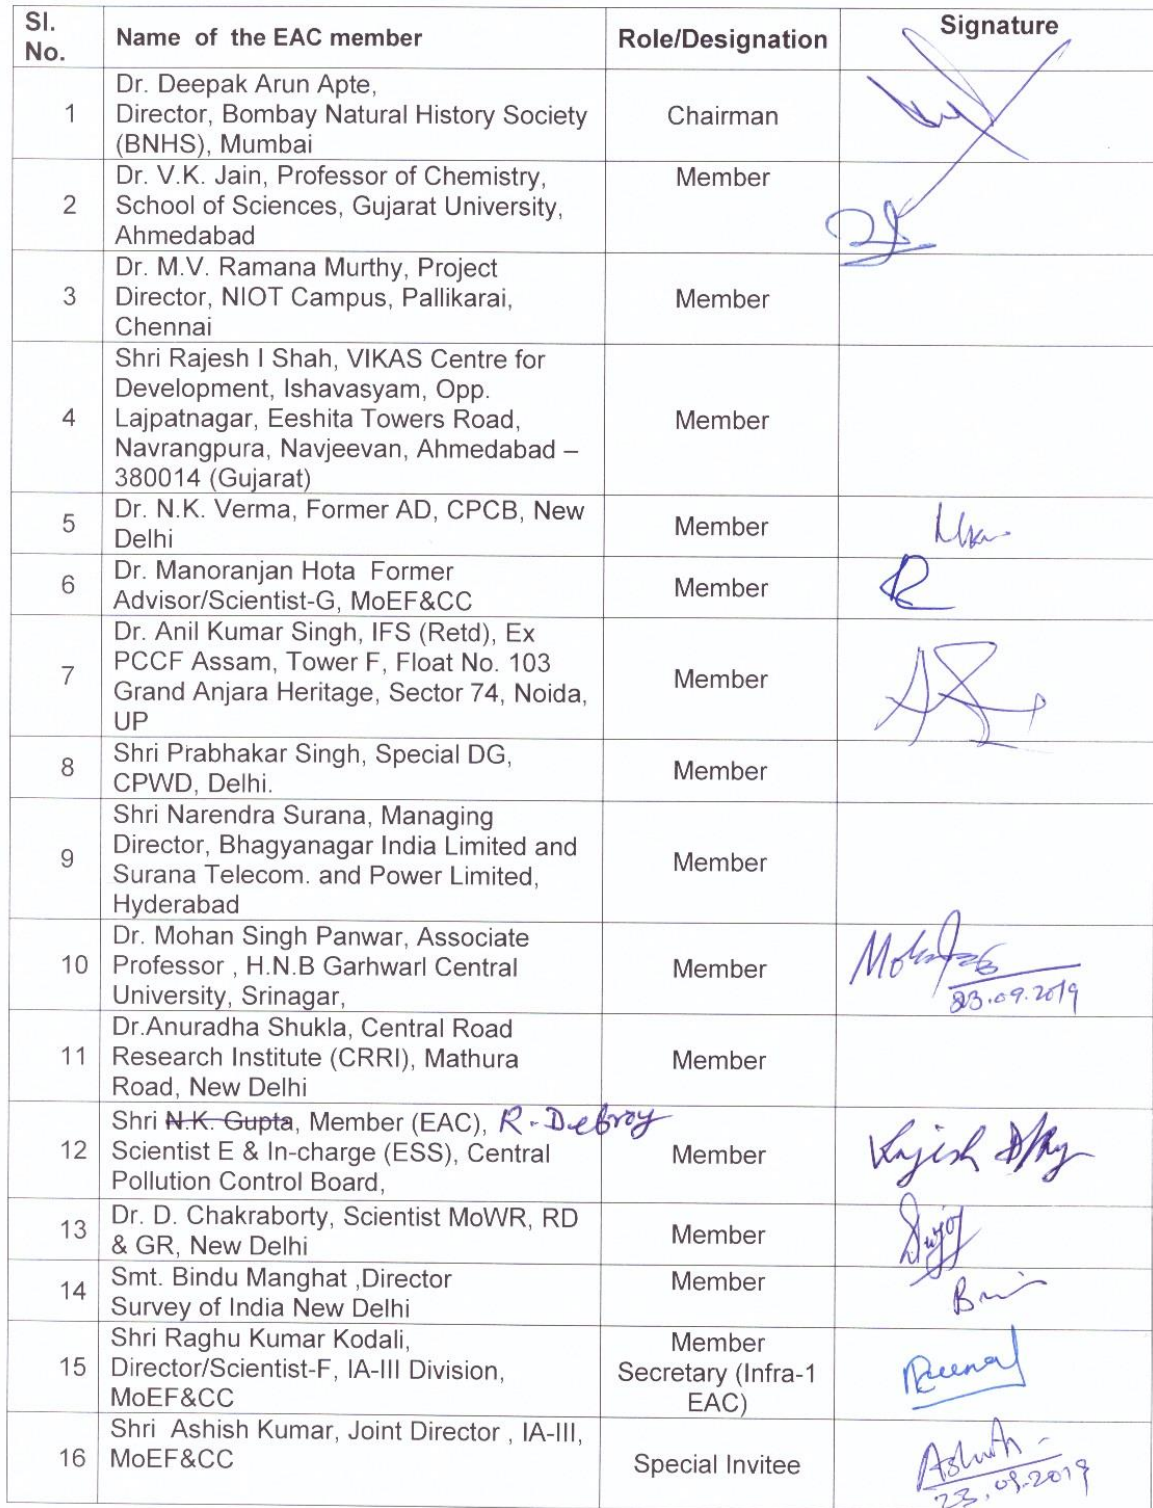 Sl. No. Name of the EAC member Role/Designation Signature
1 Dr. Deepak Arun Apte,
Director, Bombay Natural History Society
(BNHS), Mumbai
Chairman
2 Dr. V.K. Jain, Professor of Chemistry,
School of Sciences, Gujarat University,
Ahmedabad
Member
3 Dr. M.V. Ramana Murthy, Project
Director, NIOT Campus, Pallikarai,
Chennai
Member
4 Shri Rajesh I Shah, VIKAS Centre for
Development, Ishavasyam, Opp.
Lajpatnagar, Eeshita Towers Road,
Navrangpura, Navjeevan, Ahmedabad –
380014 (Gujarat)
Member
5 Dr. N.K. Verma, Former AD, CPCB, New
Delhi
Member
6 Dr. Manoranjan Hota Former
Advisor/Scientist-G, MoEF&CC
Member
7 Dr. Anil Kumar Singh, IFS (Retd), Ex
PCCF Assam, Tower F, Float No. 103
Grand Anjara Heritage, Sector 74, Noida,
UP
Member
8 Shri Prabhakar Singh, Special DG,
CPWD, Delhi.
Member
9 Shri Narendra Surana, Managing
Director, Bhagyanagar India Limited and
Surana Telecom. and Power Limited,
Hyderabad
Member
10 Dr. Mohan Singh Panwar, Associate
Professor , H.N.B Garhwarl Central
University, Srinagar,
Member
23.09.2019
11 Dr.Anuradha Shukla, Central Road
Research Institute (CRRI), Mathura
Road, New Delhi
Member
12 Shri N.K. Gupta, Member (EAC), R. Debroy
Scientist E & In-charge (ESS), Central
Pollution Control Board,
Member
13 Dr. D. Chakraborty, Scientist MoWR, RD
& GR, New Delhi
Member
14 Smt. Bindu Manghat ,Director
Survey of India New Delhi
Member
15 Shri Raghu Kumar Kodali,
Director/Scientist-F, IA-III Division,
MoEF&CC
Member
Secretary (Infra-1
EAC)
16 Shri Ashish Kumar, Joint Director , IA-III,
MoEF&CC
Special Invitee
23.09.2019